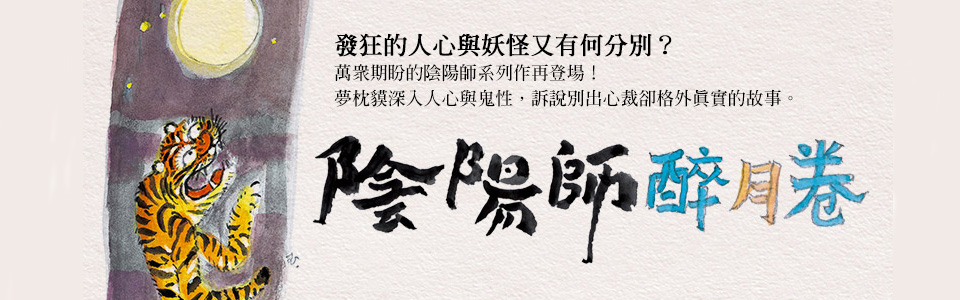 發狂的人心與妖怪又有何分別？
萬衆期盼的陰陽師系列作再登場！
夢枕獏深入人心與鬼性，訴說別出心裁卻格外眞實的故事。
陰陽師醉月卷